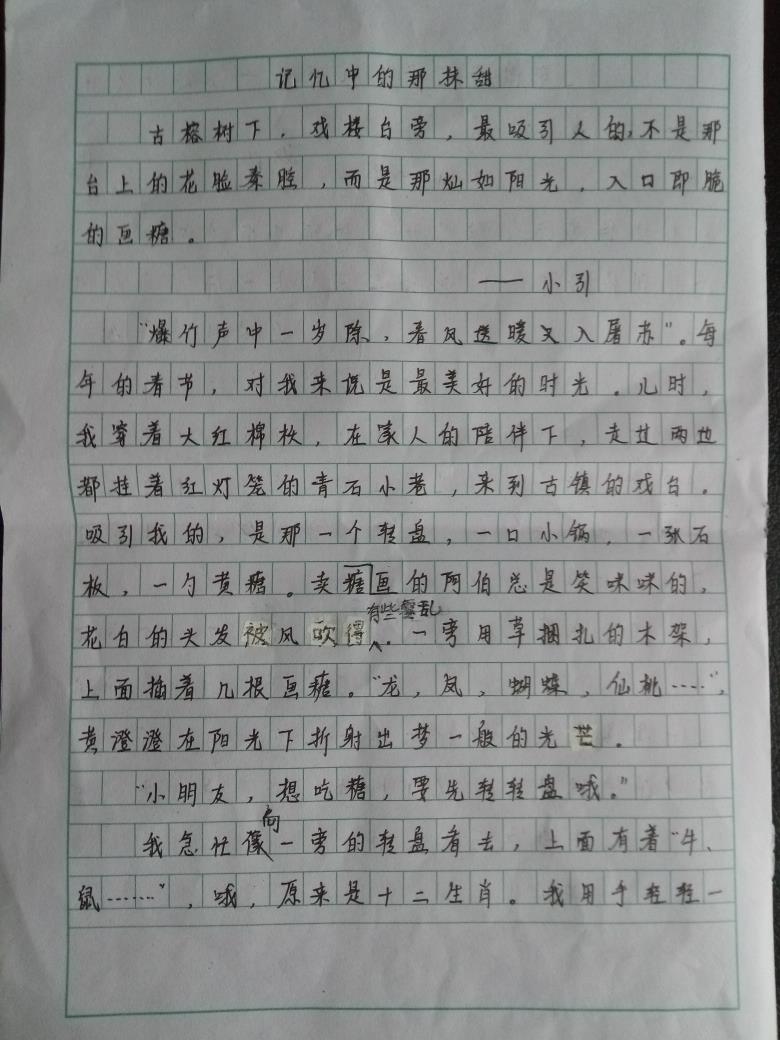 记忆中的那抹甜
古榕树下，戏楼台旁，最吸引人的，不是那
台上的花脸秦腔，而是那灿如阳光，入口即脆
的画糖。
——小引
“爆竹声中一岁除，春风送暖又入屠苏”。每
年的春节，对我来说是最美好的时光。儿时，
我穿着大红棉袄，在家人的陪伴下，走过两边
都挂着红灯笼的青石小巷，来到古镇的戏台。
吸引我的，是那一个转盘，一口小锅，一张石
板，一勺黄糖。卖糖画的阿伯总是笑咪咪的，
花白的头发被风吹得有些零乱，一旁用草捆扎的木架，
上面插着几根画糖。“龙，凤，蝴蝶，仙桃……”，
黄澄澄在阳光下折射出梦一般的光芒。
“小朋友，想吃糖，要先转转盘哦。”
我急往像向一旁的转盘看去，上面有着“牛、
鼠……”，哦，原来是十二生肖。我用手轻轻一